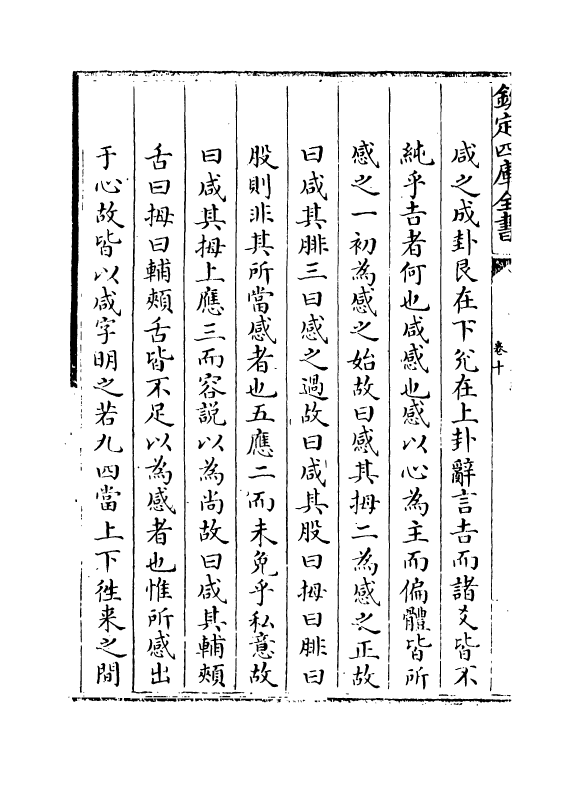 欽定四庫全書
卷十
咸之成卦艮在下兊在上卦辭言吉而諸爻皆不
純乎吉者何也咸感也感以心為主而偏體皆所
感之一初為感之始故曰感其拇二為感之正故
曰咸其腓三曰感之過故曰咸其股曰拇曰腓曰
股則非其所當感者也五應二而未免乎私意故
曰咸其拇上應三而容説以為尚故曰咸其輔頰
舌曰拇曰輔頰舌皆不足以為感者也惟所感出
于心故皆以咸字明之若九四當上下徃来之間